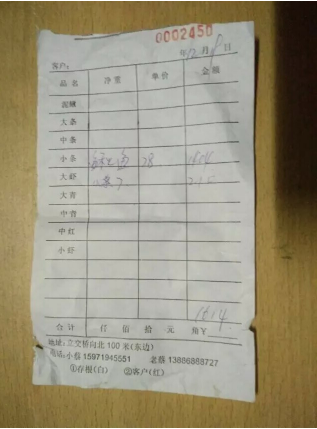 0002450
年12月8日
客户:
品名 净重 单价 金额
泥鳅
大条
中条
小条 28 1604
大虾 210
大青
中青
中红
小虾
1814
合计 仟 佰 拾 元 角¥
地址:立交桥向北100米(东边)
电话:小蔡15971945551 老蔡13886888727
①存根(白) ②客户(红)